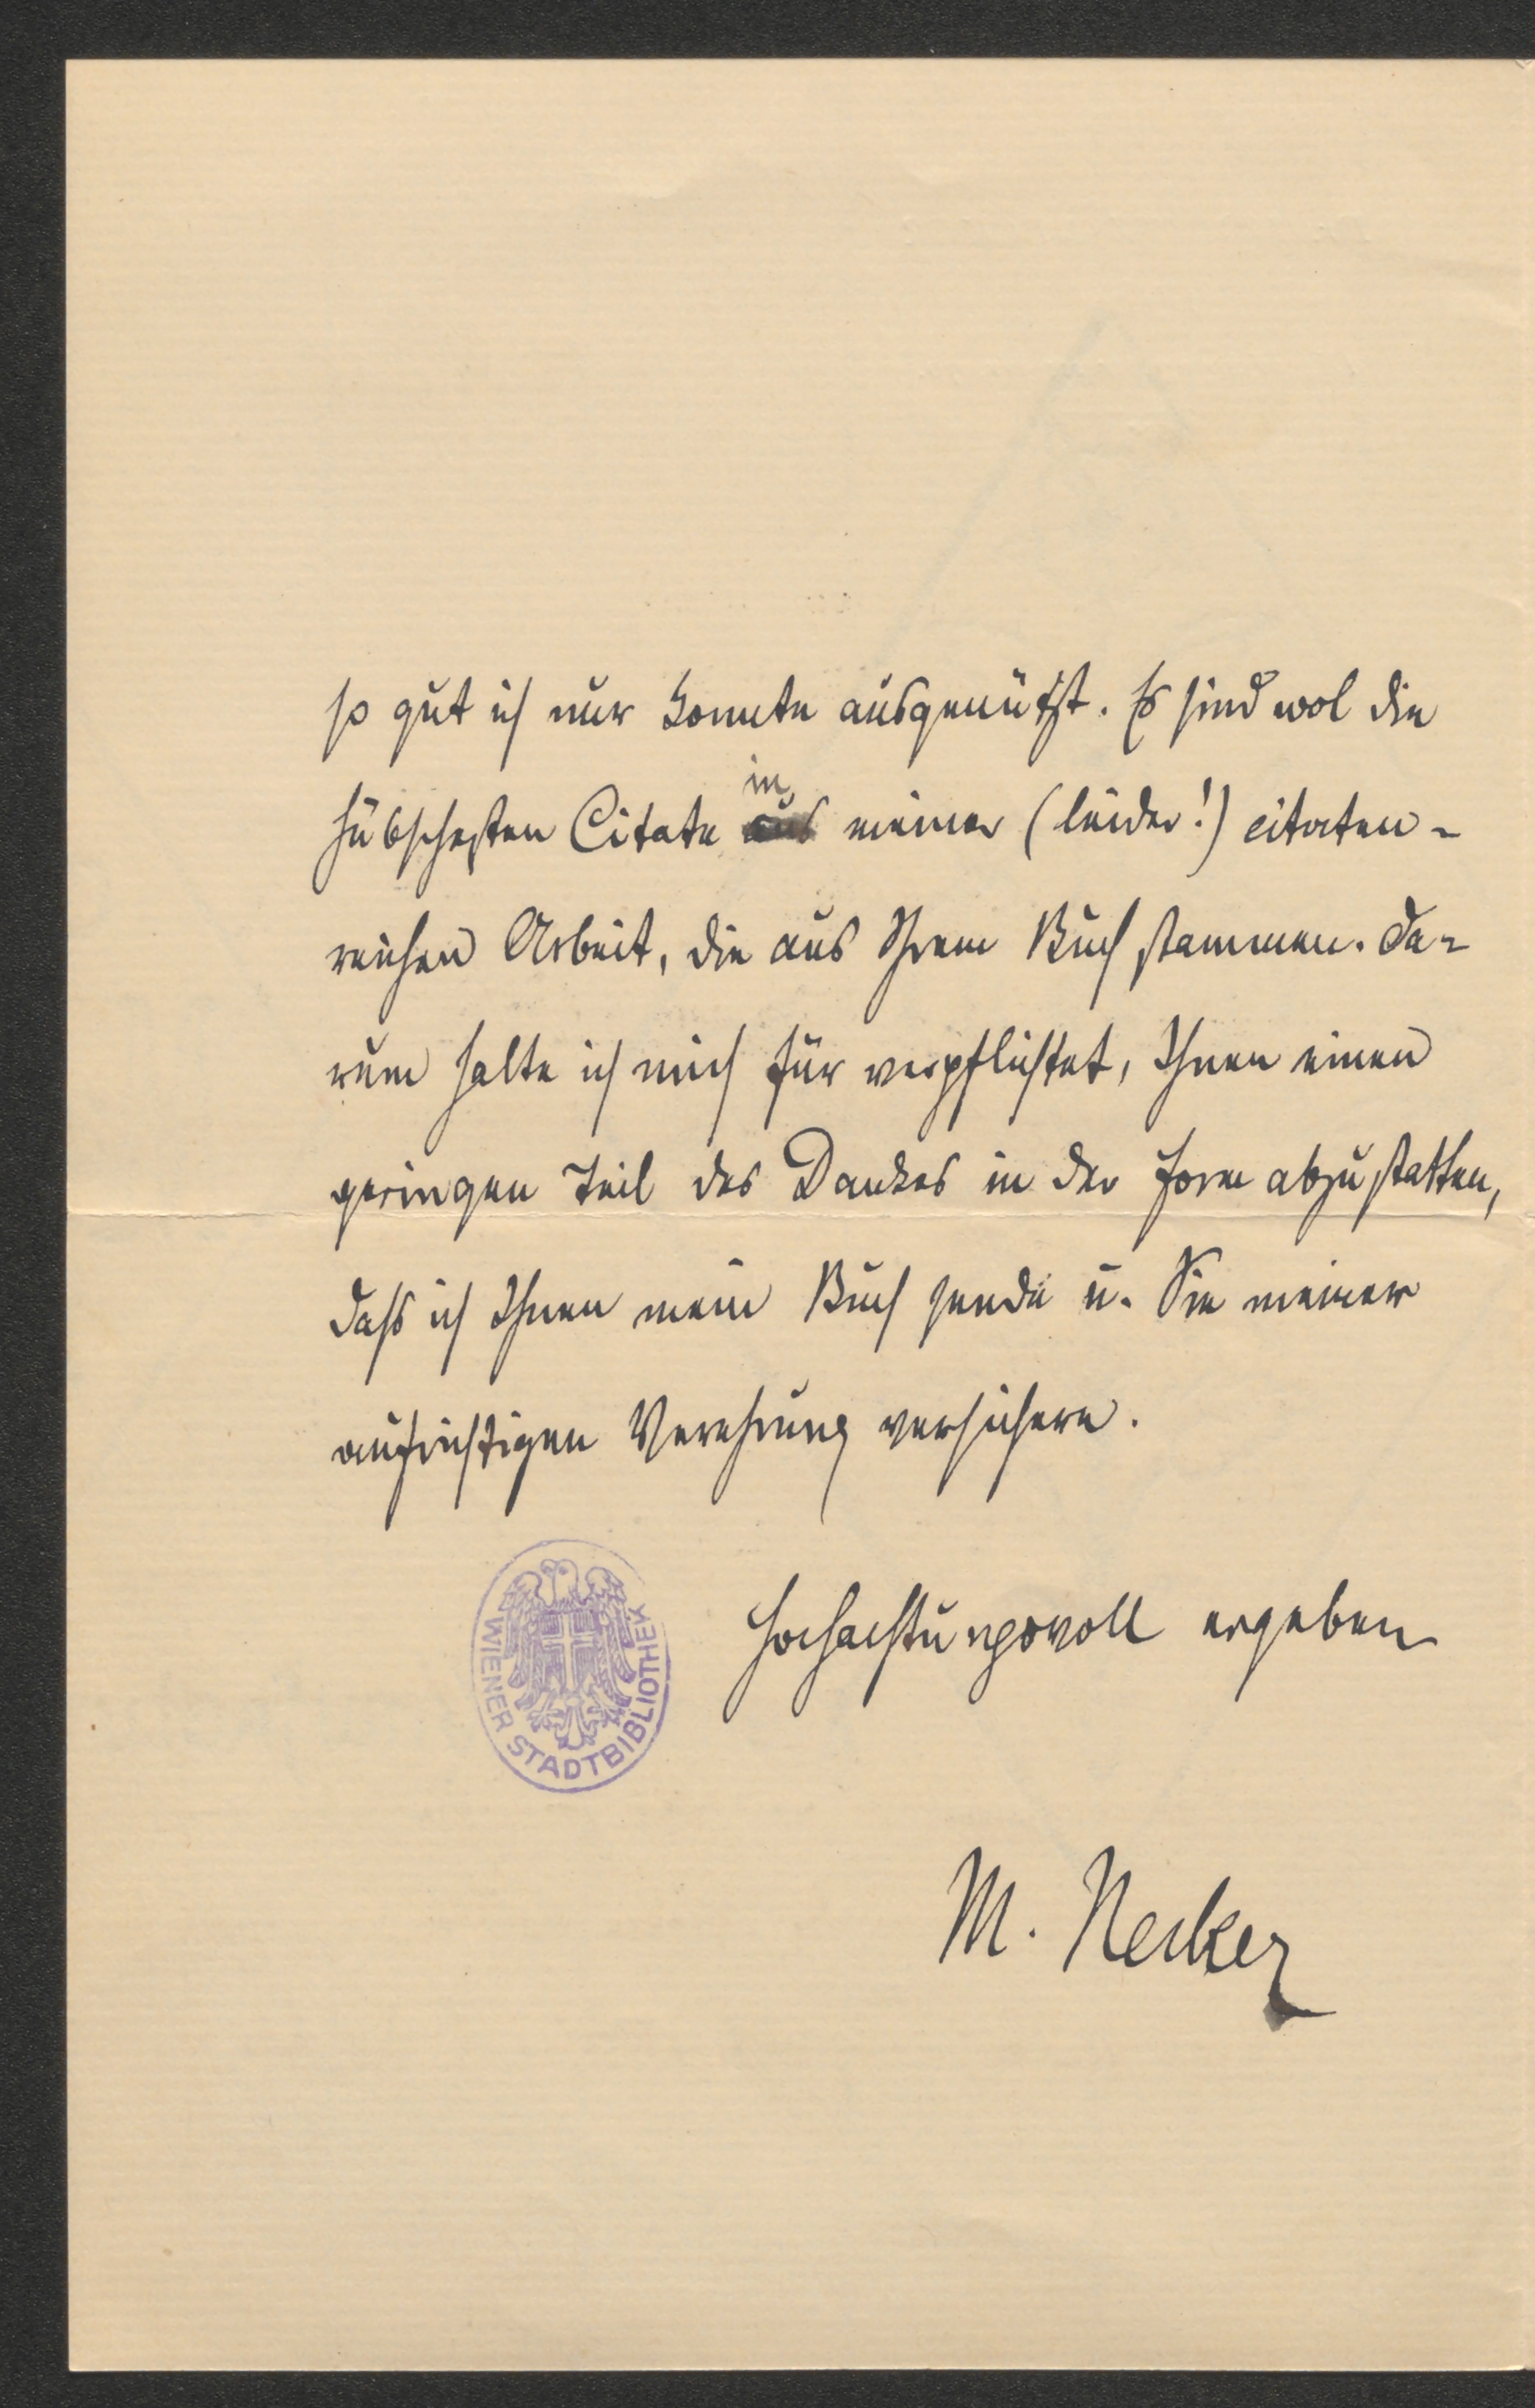 so gut ich nur konnte ausgenützt. Es sind wol die
in
hübschesten Citate aus meiner (leider!) citaten-
reichen Arbeit, die aus Ihrem Buch stammen. Da-
rum halte ich mich für verpflichtet, Ihnen einen
geringen Teil des Dankes in der Form abzustatten,
dass ich Ihnen mein Buch sende u. Sie meiner
aufrichtigen Verehrung versichere.
Hochachtungsvoll ergeben
M. Necker
WIENER STADTBIBLIOTHEK